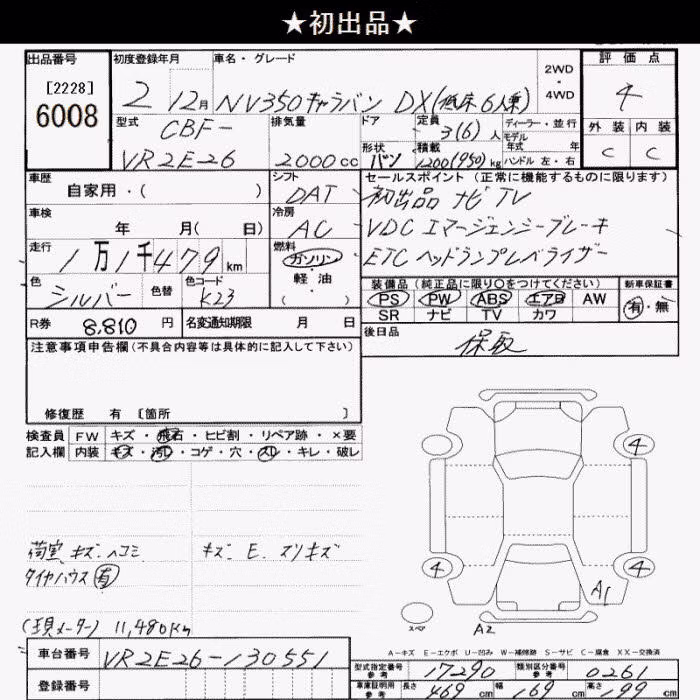 ★初出品★
出品番号
[2228]
6008
初度登録年月
2 12月
車名・グレード
NV350キャラバン DX(低床6人乗)
2WD
・
4WD
評価点
4
外装 内装
C C
型式
CBF-
VR2E26
排気量
2000cc
ドア
形状
バン
定員
3(6)人
積載
1200(950)kg
ディーラー・並行
モデル
年式 年
ハンドル 左・右
車歴
自家用・( )
シフト
DAT
車検
年 月( 日)
冷房
AC
走行
1万1千479km
燃料
ガソリン
軽油
( )
色
シルバー
色替
色コード
K23
R券
8,810 円
名変通知期限 月 日
セールスポイント (正常に機能するものに限ります)
初出品 ナビ TV
VDC エマージェンシーブレーキ
ETC ヘッドランプレベライザー
装備品 (純正品に限り○をつけてください)
新車保証書
PS PW ABS エアB AW
SR ナビ TV カワ
有・無
後日品
保取
注意事項申告欄(不具合内容等は具体的に記入して下さい)
修復歴 有 [箇所 ]
検査員 FW キズ・飛石・ヒビ割・リペア跡・×要
記入欄 内装 キズ・汚れ・コゲ・穴・スレ・キレ・破レ
荷室 キズ.ヘコミ
キズ. E. スリキズ
タイヤハウス 有
(現メーター) 11,480Km
4
4
4
4
A1
スペア
A2
A-キズ E-エクボ U-凹み W-補修跡 S-サビ C-腐食 XX-交換済
車台番号
VR2E26-130551
登録番号
型式指定番号
参考
17290
類別区分番号
参考
0261
車庫証明用
参考
長さ
469cm
幅
169cm
高さ
199cm